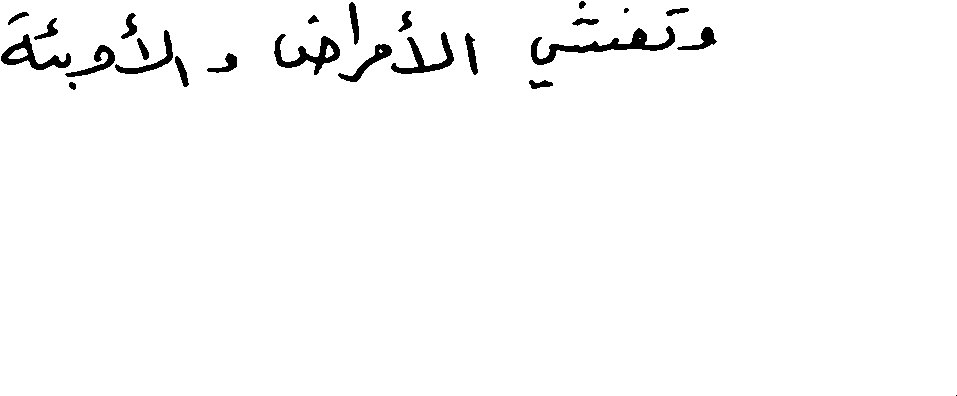 وتفشي الأمراض والأوبئة